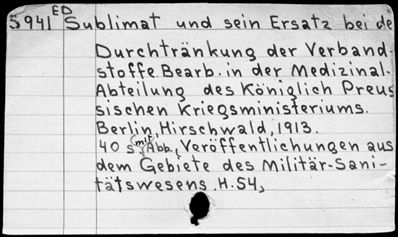 ED
5941 Sublimat und sein Ersatz bei de
Durchtränkung der Verband-
stoffe. Bearb. in der Medizinal-
Abteilung des Königlich Preus
sischen Kriegsministeriums.
Berlin, Hirschwald, 1913.
40 S. mit Abb., Veröffentlichungen aus
dem Gebiete des Militär-Sani-
tätswesens. H. 54,